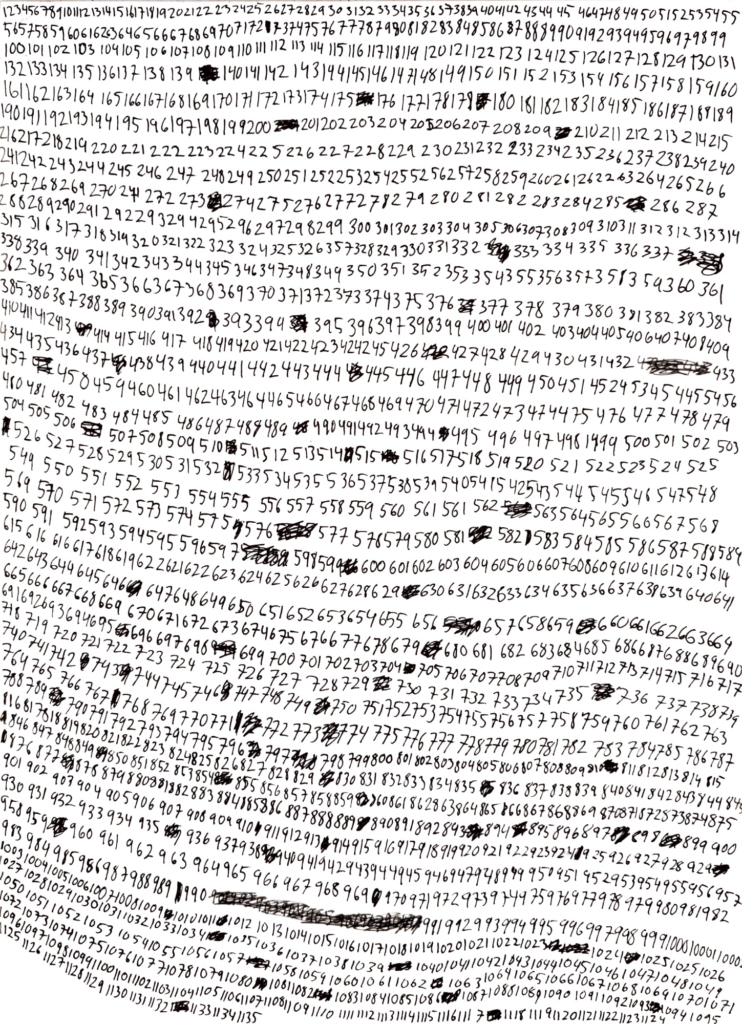 12345678910111213141516171819202122232425262728293031323334353637383940414243444546474849505152535455
5657585960616263646566676869707172737475767778798081828384858687888990919293949596979899
100 101 102 103 104 105 106 107 108 109 110 111 112 113 114 115 116 117 118 119 120 121 122 123 124 125 126 127 128 129 130 131
132 133 134 135 136 137 138 139 140 141 142 143 144 145 146 147 148 149 150 151 152 153 154 156 157 158 159 160
161 162 163 164 165 166 167 168 169 170 171 172 173 174 175 176 177 178 179 180 181 182 183 184 185 186 187 188 189
190 191 192 193 194 195 196 197 198 199 200 201 202 203 204 205 206 207 208 209 210 211 212 213 214 215
216 217 218 219 220 221 222 223 224 225 226 227 228 229 230 231 232 233 234 235 236 237 238 239 240
241 242 243 244 245 246 247 248 249 250 251 252 253 254 255 256 257 258 259 260 261 262 263 264 265 266
267 268 269 270 271 272 273 274 275 276 277 278 279 280 281 282 283 284 285 286 287
288 289 290 291 292 293 294 295 296 297 298 299 300 301 302 303 304 305 306 307 308 309 310 311 312 313 314
315 316 317 318 319 320 321 322 323 324 325 326 357 328 329 330 331 332 333 334 335 336 337
338 339 340 341 342 343 344 345 346 347 348 349 350 351 352 353 354 355 356 357 358 359 360 361
362 363 364 365 366 367 368 369 370 371 372 373 374 375 376 377 378 379 380 381 382 383 384
385 386 387 388 389 390 391 392 393 394 395 396 397 398 399 400 401 402 403 404 405 406 407 408 409
410 411 412 413 414 415 416 417 418 419 420 421 422 423 424 425 426 427 428 429 430 431 432 433
434 435 436 437 438 439 440 441 442 443 444 445 446 447 448 449 450 451 452 453 454 455 456
457 458 459 460 461 462 463 464 465 466 467 468 469 470 471 472 473 474 475 476 477 478 479
480 481 482 483 484 485 486 487 488 489 490 491 492 493 494 495 496 497 498 499 500 501 502 503
504 505 506 507 508 509 510 511 512 513 514 515 516 517 518 519 520 521 522 523 524 525
526 527 528 529 530 531 532 533 534 535 536 537 538 539 540 541 542 543 544 545 546 547 548
549 550 551 552 553 554 555 556 557 558 559 560 561 562 563 564 565 566 567 568
569 570 571 572 573 574 575 576 577 578 579 580 581 582 583 584 585 586 587 588 589
590 591 592 593 594 595 596 597 598 599 600 601 602 603 604 605 606 607 608 609 610 611 612 613 614
615 616 616 617 618 619 622 621 622 623 624 625 626 627 628 629 630 631 632 633 634 635 636 637 638 639 640 641
642 643 644 645 646 647 648 649 650 651 652 653 654 655 656 657 658 659 660 661 662 663 664
665 666 667 668 669 670 671 672 673 674 675 676 677 678 679 680 681 682 683 684 685 686 687 688 689 690
691 692 693 694 695 696 697 698 699 700 701 702 703 704 705 706 707 708 709 710 711 712 713 714 715 716 717
718 719 720 721 722 723 724 725 726 727 728 729 730 731 732 733 734 735 736 737 738 739
740 741 742 743 744 745 746 747 748 749 750 751 752 753 754 755 756 757 758 759 760 761 762 763
764 765 766 767 768 769 770 771 772 773 774 775 776 777 778 779 780 781 782 783 784 785 786 787
788 789 790 791 792 793 794 795 796 797 798 799 800 801 802 803 804 805 806 807 808 809 810 811 812 813 814 815
816 817 818 819 820 821 822 823 824 825 826 827 828 829 830 831 832 833 834 835 836 837 838 839 840 841 842 843 844 845
846 847 848 849 850 851 852 853 854 855 856 857 858 859 860 861 862 863 864 865 866 867 868 869 870 871 872 873 874 875
876 877 878 879 880 881 882 883 884 885 886 887 888 889 890 891 892 893 894 895 896 897 898 899 900
901 902 903 904 905 906 907 908 909 910 911 912 913 914 915 916 917 918 919 920 921 922 923 924 925 926 927 928 929
930 931 932 933 934 935 936 937 938 939 940 941 942 943 944 945 946 947 948 949 950 951 952 953 954 955 956 957
958 959 960 961 962 963 964 965 966 967 968 969 970 971 972 973 974 975 976 977 978 979 980 981 982
983 984 985 986 987 988 989 990 991 992 993 994 995 996 997 998 999 1000 1001 1002
1003 1004 1005 1006 1007 1008 1009 1010 1011 1012 1013 1014 1015 1016 1017 1018 1019 1020 1021 1022 1023 1024 1025 1026
1027 1028 1029 1030 1031 1032 1033 1034 1035 1036 1037 1038 1039 1040 1041 1042 1043 1044 1045 1046 1047 1048 1049
1050 1051 1052 1053 1054 1055 1056 1057 1058 1059 1060 1061 1062 1063 1064 1065 1066 1067 1068 1069 1070 1071
1072 1073 1074 1075 1076 1077 1078 1079 1080 1081 1082 1083 1084 1085 1086 1087 1088 1089 1090 1091 1092 1093 1094 1095
1096 1097 1098 1099 1100 1101 1102 1103 1104 1105 1106 1107 1108 1109 1110 1111 1112 1113 1114 1115 1116 1117 1118 1119 1120 1121 1122 1123 1124
1125 1126 1127 1128 1129 1130 1131 1132 1133 1134 1135